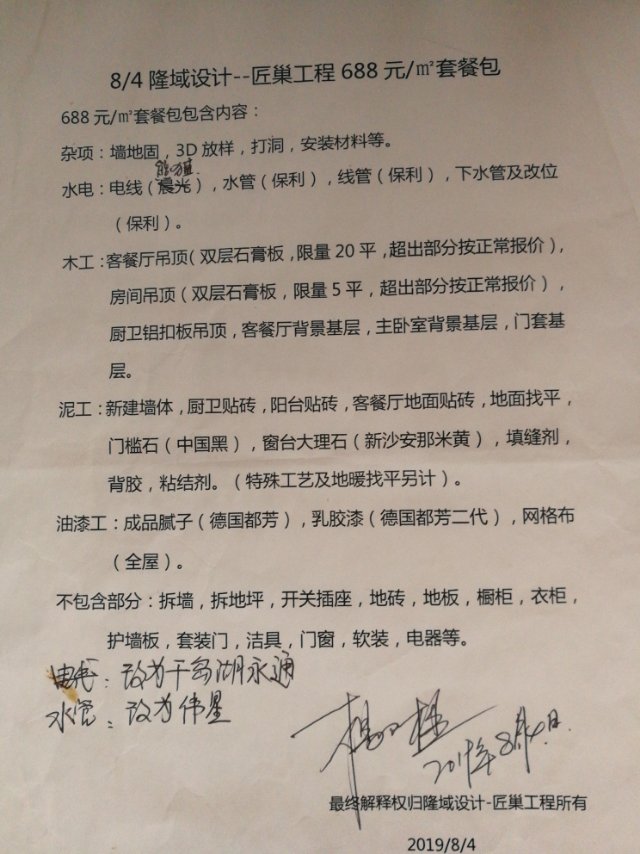 8/4 隆域设计--匠巢工程 688 元/㎡套餐包
688 元/㎡套餐包包含内容：
杂项：墙地固，3D 放样，打洞，安装材料等。
水电：电线（晨光），水管（保利），线管（保利），下水管及改位
（保利）。
木工：客餐厅吊顶（双层石膏板，限量 20 平，超出部分按正常报价），
房间吊顶（双层石膏板，限量 5 平，超出部分按正常报价），
厨卫铝扣板吊顶，客餐厅背景基层，主卧室背景基层，门套基
层。
泥工：新建墙体，厨卫贴砖，阳台贴砖，客餐厅地面贴砖，地面找平，
门槛石（中国黑），窗台大理石（新沙安那米黄），填缝剂，
背胶，粘结剂。（特殊工艺及地暖找平另计）。
油漆工：成品腻子（德国都芳），乳胶漆（德国都芳二代），网格布
（全屋）。
不包含部分：拆墙，拆地坪，开关插座，地砖，地板，橱柜，衣柜，
护墙板，套装门，洁具，门窗，软装，电器等。
：改为千岛湖永通
水管：改为伟星
2019年8月4日
最终解释权归隆域设计-匠巢工程所有
2019/8/4